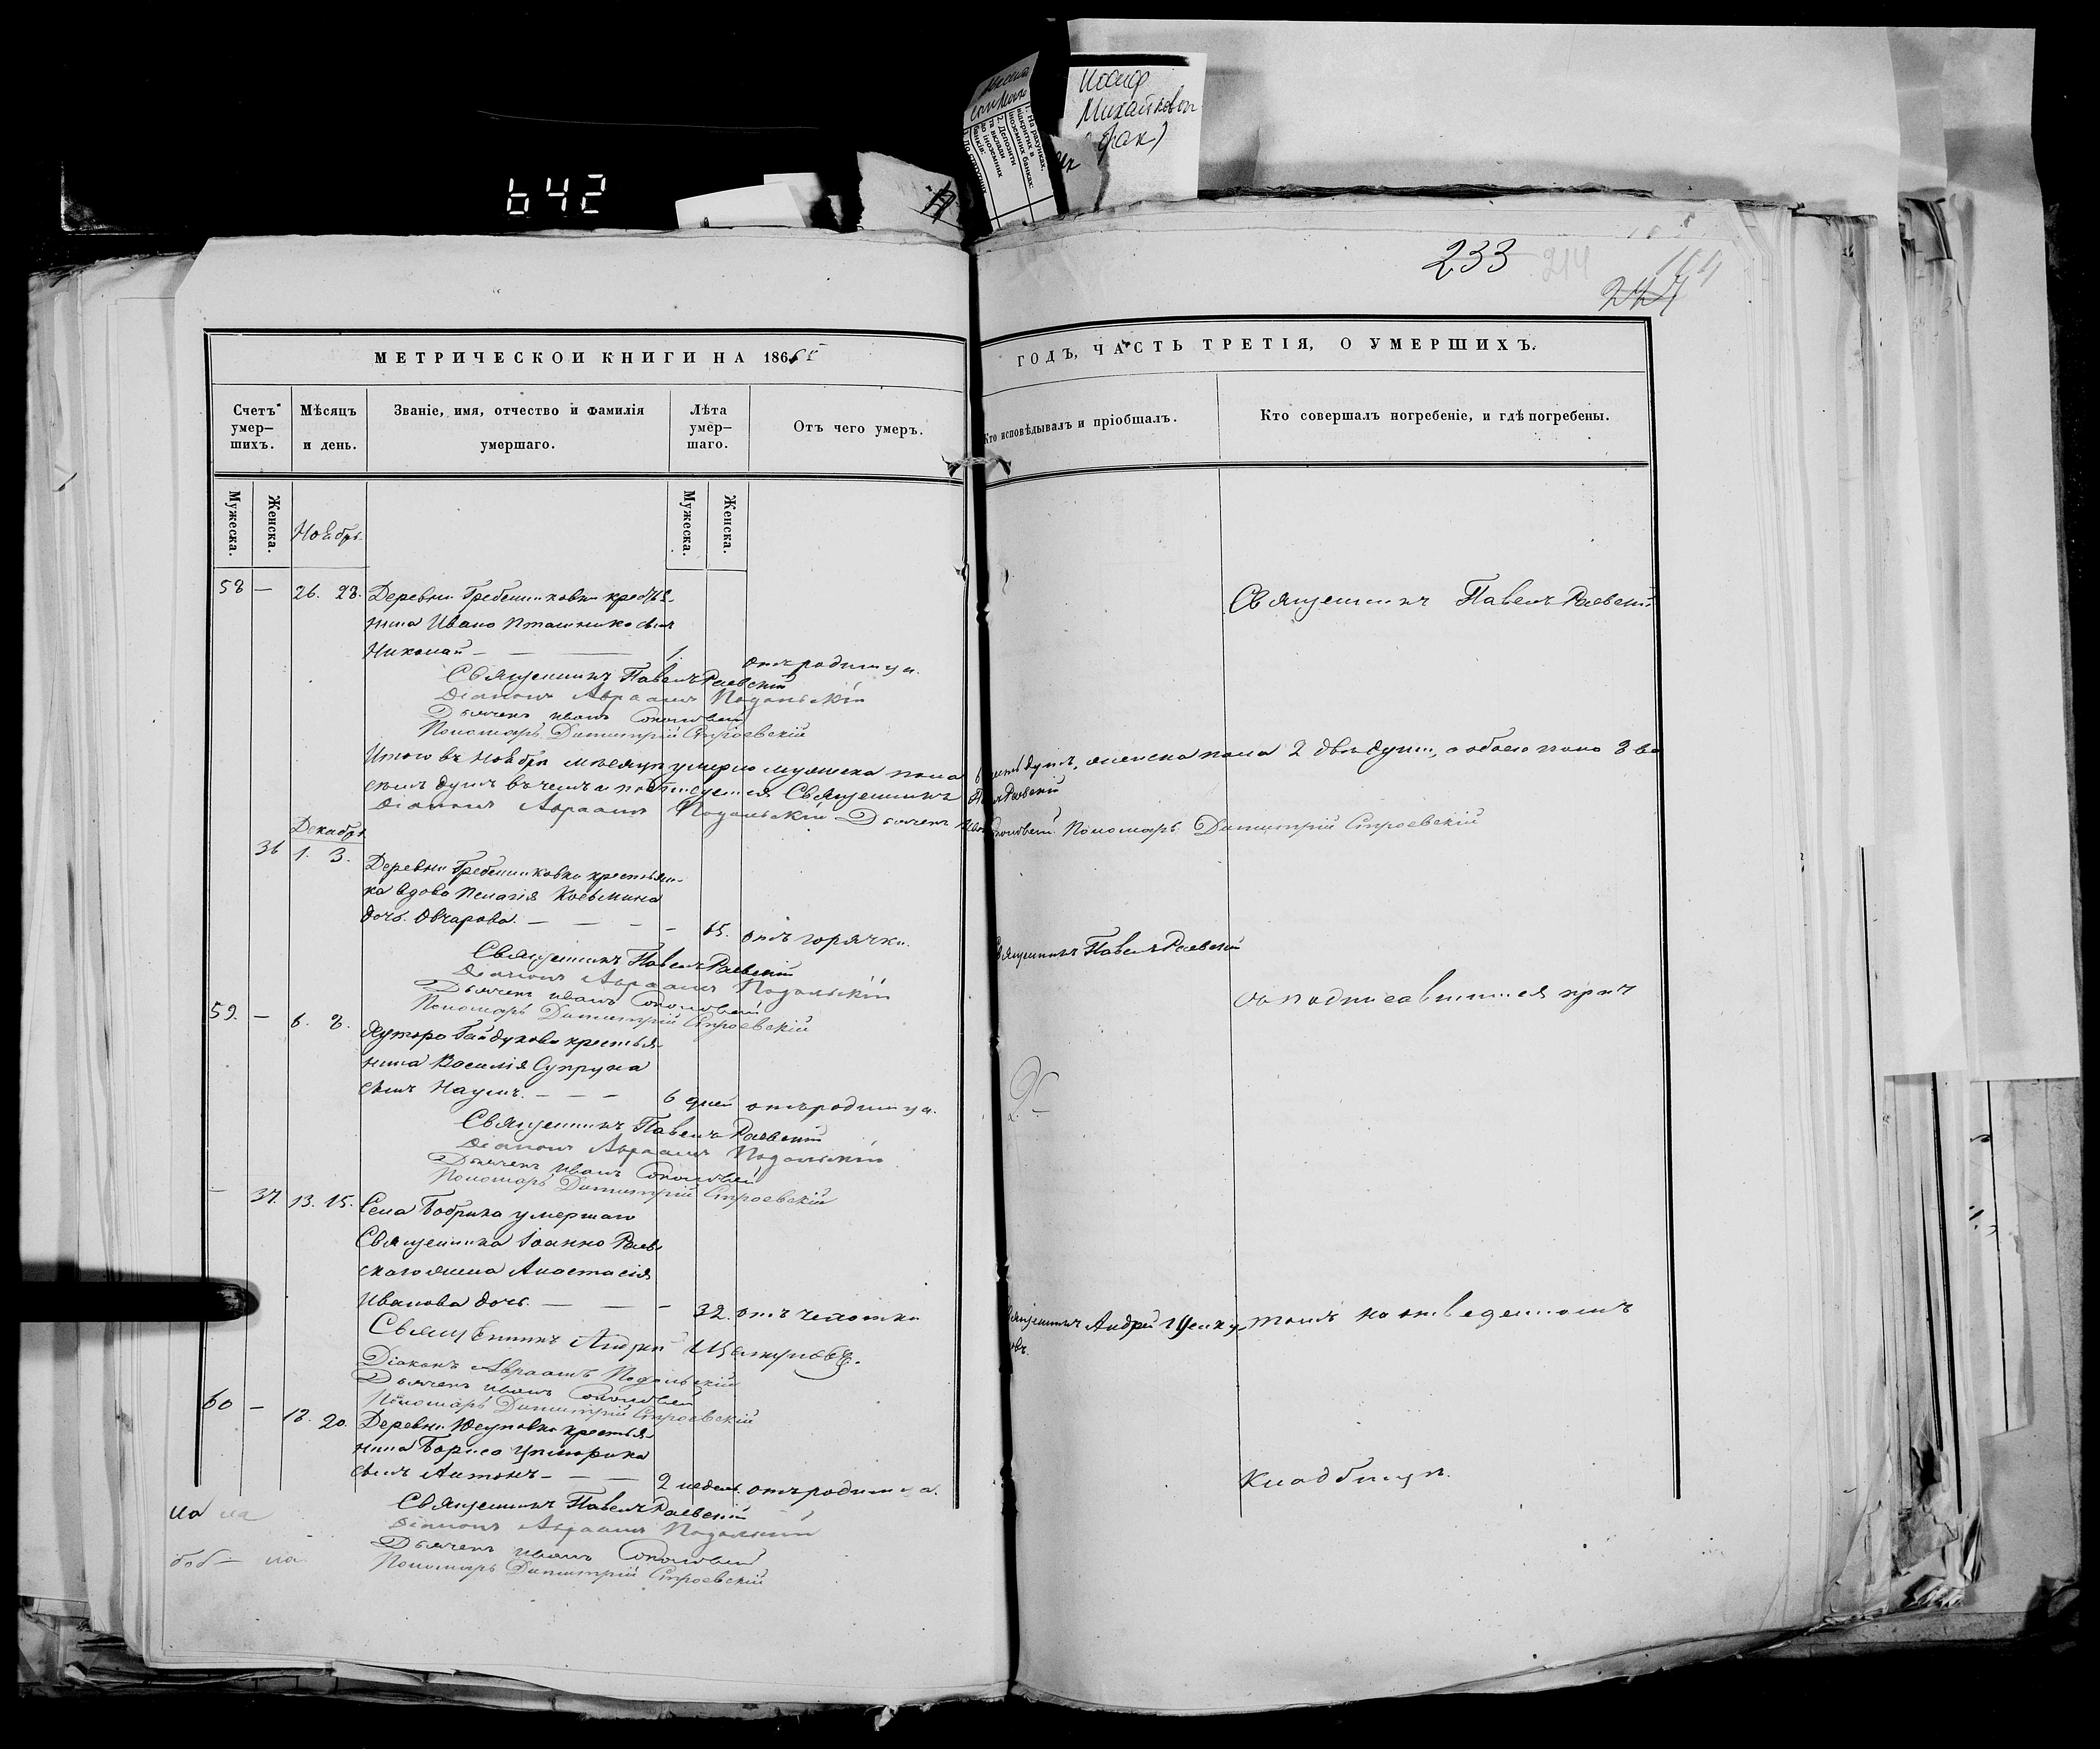 642
Иосиф
Михайлович
233 214
МЕТРИЧЕСКОЙ КНИГИ НА 1866й ГОДЪ, ЧАСТЬ ТРЕТІЯ, О УМЕРШИХЪ.
Счетъ умер-
шихъ.
Мѣсяцъ
и день.
Званіе, имя, отчество и фамилія
умершаго.
Лѣта
умер-
шаго.
Отъ чего умеръ.
Кто исповѣдывалъ и пріобщалъ.
Кто совершалъ погребеніе, и гдѣ погребены.
Мужеска.
Женска.
Мужеска.
Женска.
Ноябрь
58 — 26. 28. Деревни Гребенниковки крестья-
нина Ивана Пташника сынъ
Николай — — — 1. отъ родимца.
Священникъ Павелъ Раевскій
Священникъ Павелъ Раевскій
Діаконъ Авраамъ Подольскій
Дьячекъ Иванъ
Пономарь Димитрій Строевскій
Итого въ Ноябрѣ мѣсяцѣ умерло мужеска пола 6 шесть душъ, женска пола 2 двѣ души, а обоего пола 8 во
семь душъ въ чемъ и подписуемся Священникъ Павелъ Раевскій
Діаконъ Авраамъ Подольскій Дьячекъ Иванъ Пономарь Димитрій Строевскій
Декабрь
36 1. 3. Деревни Гребенниковки крестьян-
ка вдова Пелагія Косьмина
дочь Овчарова. — — — 65. отъ горячки.
Священникъ Павелъ Раевскій
Священникъ Павелъ Раевскій
Діаконъ Авраамъ Подольскій
Дьячекъ Иванъ
Пономарь Димитрій Строевскій
съ подписавшимся прич
59. — 6. 8. Хутора Гайдукова крестья-
нина Василія Супруна
сынъ Наумъ. — — — 6 дней отъ родимца.
Священникъ Павелъ Раевскій
Діаконъ Авраамъ Подольскій
Дьячекъ Иванъ
Пономарь Димитрій Строевскій
— 37. 13. 15. Села Бобрика умершаго
Священника Іоанна Раев-
скаго жена Анастасія
Иванова дочь. — — — 32. отъ чахотки
Священникъ Андрей Щелкуновъ. томъ на отведенномъ
Священникъ Андрей Щелкуновъ.
Діаконъ Авраамъ Подольскій
Дьячекъ Иванъ
Пономарь Димитрій Строевскій
60 — 18. 20. Деревни Юсуповки крестья-
нина Бориса
сынъ Антонъ — — — 2 недель. отъ родимца.
кладбищѣ.
Священникъ Павелъ Раевскій
Діаконъ Авраамъ Подольскій
Дьячекъ Иванъ
Пономарь Димитрій Строевскій